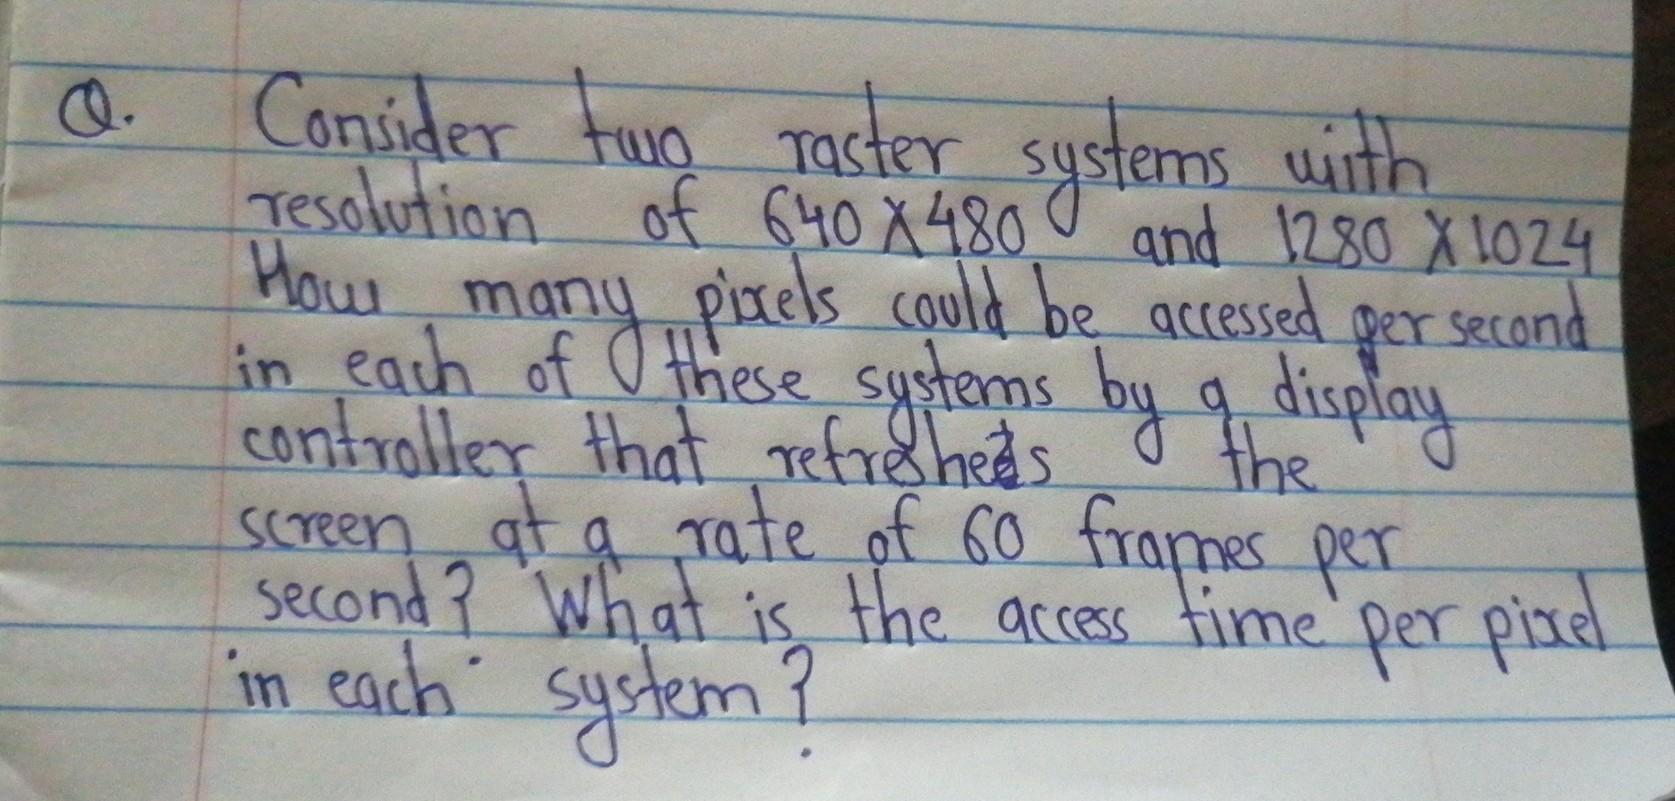 Q. Consider two raster systems with
resolution of 640 X 480 and 1280 X 1024
How many pixels could be accessed per second
in each of these systems by a display
controller that refreshes the
screen at a rate of 60 frames per
second? What is the access time per pixel
in each system?